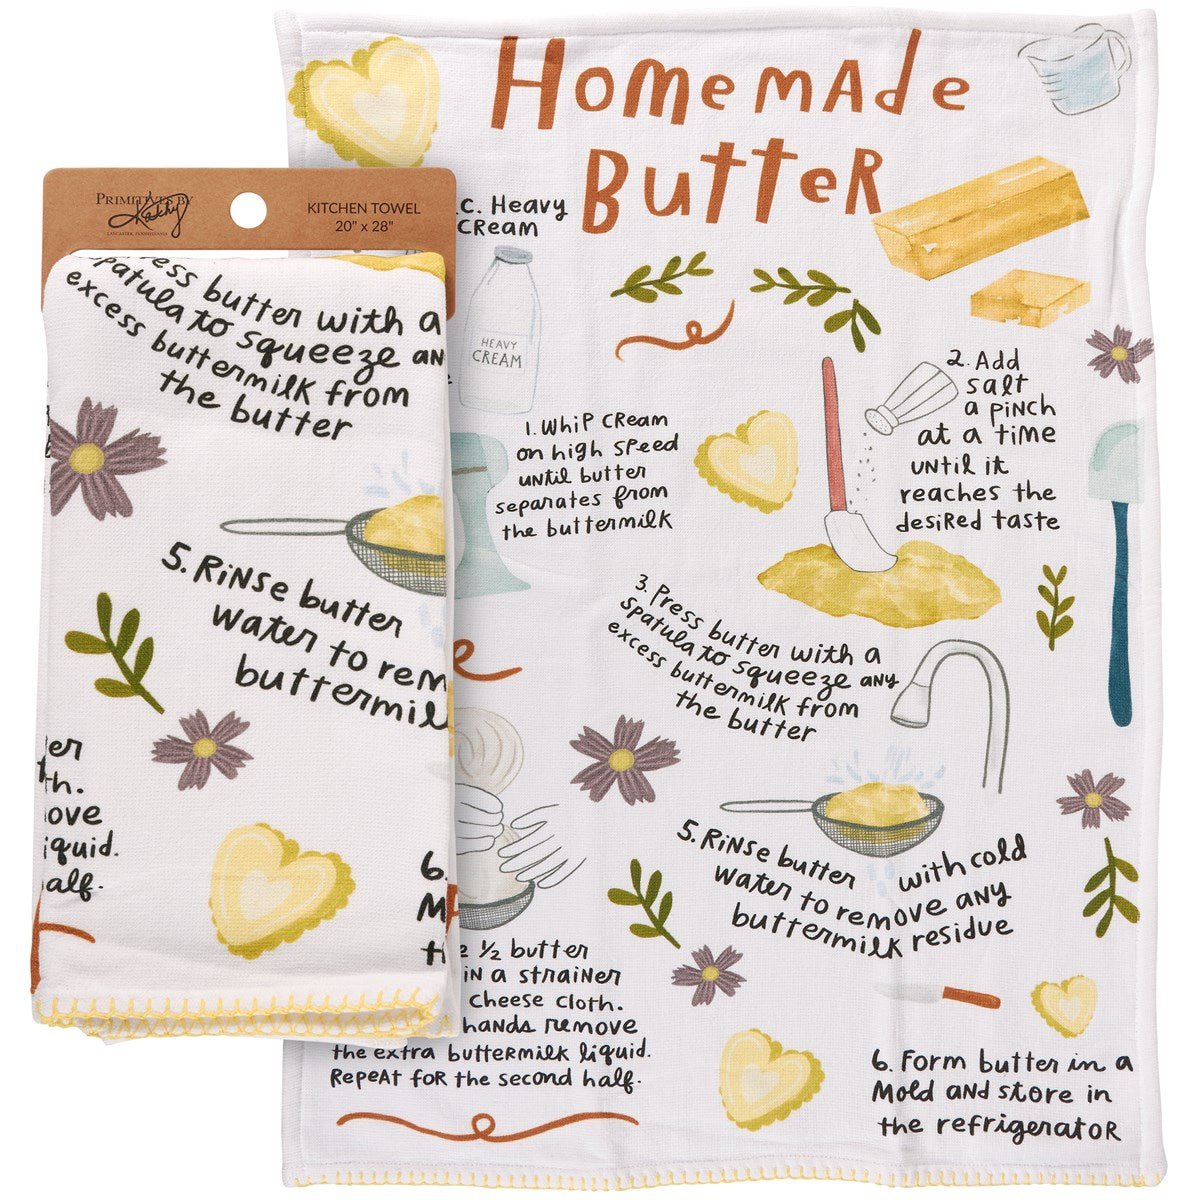 PRIMITIVES BY
Kathy
LANCASTER, PENNSYLVANIA
KITCHEN TOWEL
20" x 28"
butter with a
spatula to squeeze
excess buttermilk from
the butter
5. Rinse butter
water to
6.
Homemade
Butter
c. Heavy
Cream
HEAVY
CREAM
1. Whip cream
on high speed
until butter
separates from
the buttermilk
2. Add
salt
a pinch
at a time
until it
reaches the
desired taste
3. Press butter with a
spatula to squeeze any
excess buttermilk from
the butter
5. Rinse butter with cold
water to remove any
buttermilk residue
½ butter
in a strainer
cheese cloth.
hands remove
the extra buttermilk liquid.
Repeat for the second half.
6. Form butter in a
mold and store in
the refrigerator